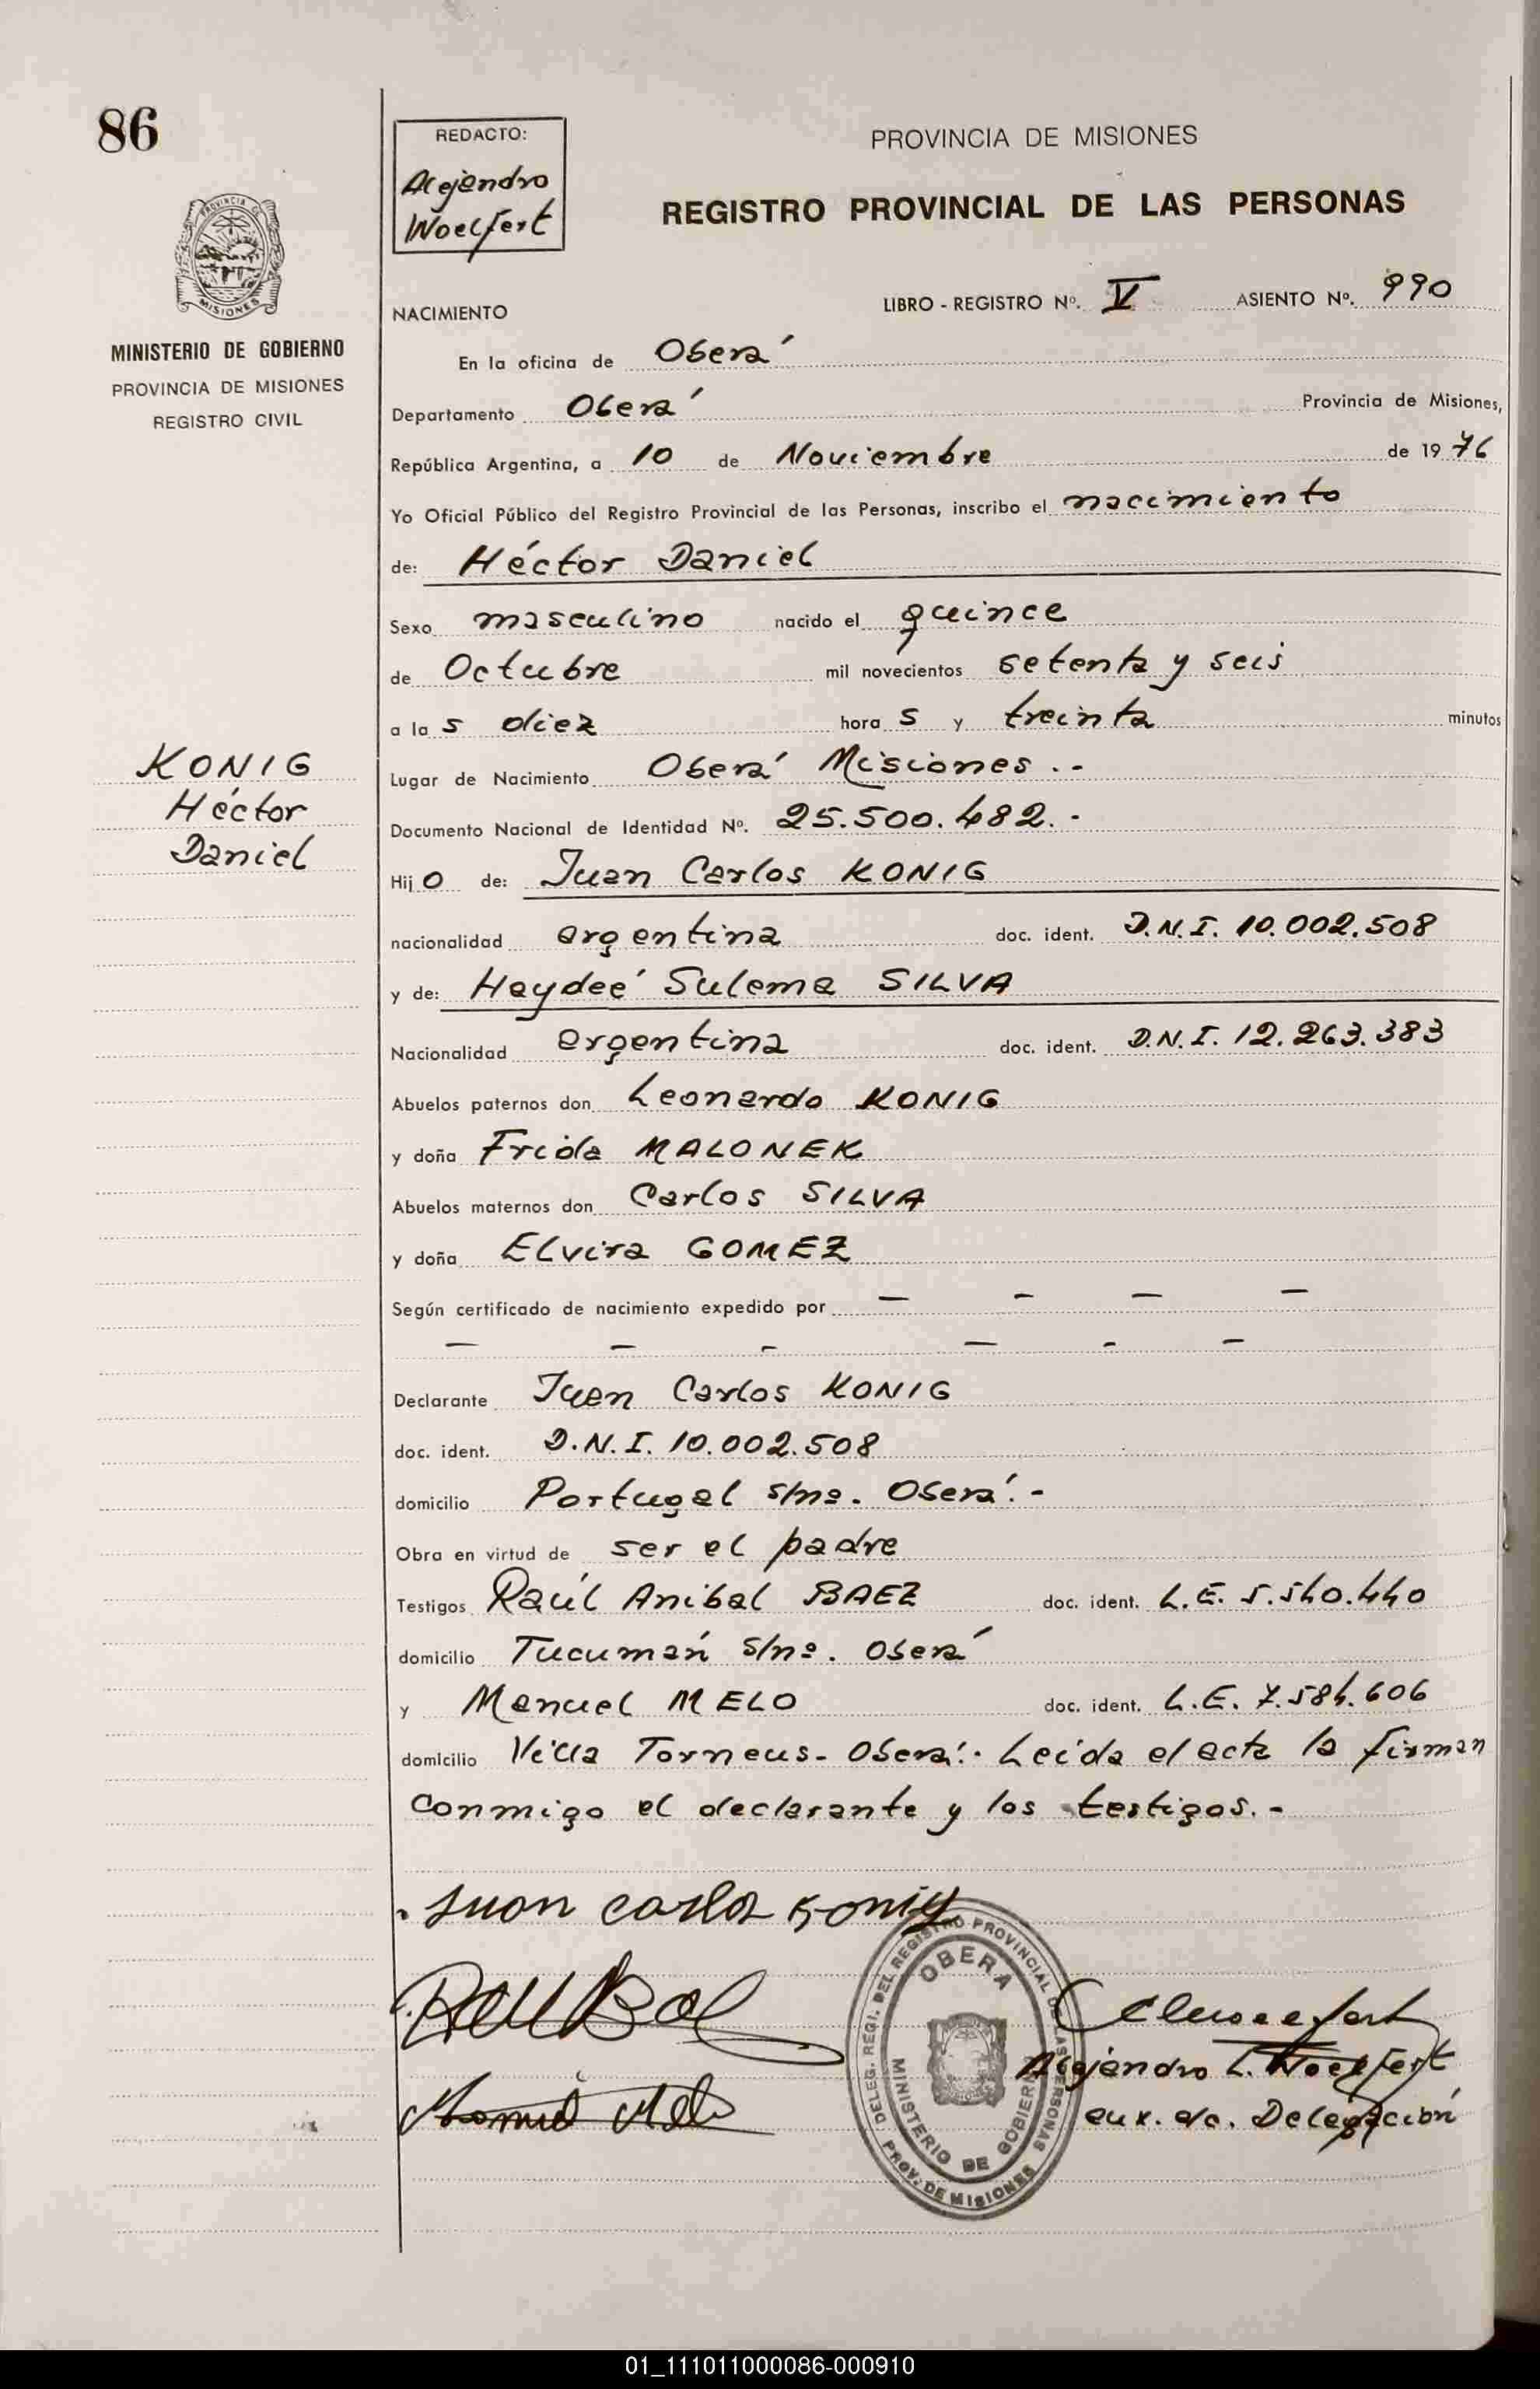 86
REDACTO:
Alejandro
Woelfert
PROVINCIA DE MISIONES
REGISTRO PROVINCIAL DE LAS PERSONAS
PROVINCIA DE
MISIONES
MINISTERIO DE GOBIERNO
PROVINCIA DE MISIONES
REGISTRO CIVIL
NACIMIENTO LIBRO - REGISTRO Nº. V ASIENTO Nº. 990
En la oficina de Oberá
Departamento Oberá Provincia de Misiones,
República Argentina, a 10 de Noviembre de 1976
Yo Oficial Público del Registro Provincial de las Personas, inscribo el nacimiento
de: Héctor Daniel
Sexo masculino nacido el quince
de Octubre mil novecientos setenta y seis
a las diez horas y treinta minutos
KONIG
Héctor
Daniel
Lugar de Nacimiento Oberá Misiones.-
Documento Nacional de Identidad Nº. 25.500.482.-
Hijo de: Juan Carlos KONIG
nacionalidad argentina doc. ident. D.N.I. 10.002.508
y de: Haydeé Sulema SILVA
Nacionalidad argentina doc. ident. D.N.I. 12.263.383
Abuelos paternos don Leonardo KONIG
y doña Frida MALONEK
Abuelos maternos don Carlos SILVA
y doña Elvira GOMEZ
Según certificado de nacimiento expedido por — — — —
— — — — — —
Declarante Juan Carlos KONIG
doc. ident. D.N.I. 10.002.508
domicilio Portugal s/nº. Oberá.-
Obra en virtud de ser el padre
Testigos Raúl Anibal BAEZ doc. ident. L.E. 5.540.440
domicilio Tucumán s/nº. Oberá
y Manuel MELO doc. ident. L.E. 7.584.606
domicilio Villa Torneus- Oberá.- Leída el acta la firman
conmigo el declarante y los testigos.-
Juan Carlos Konig
DELEG. REGI. DEL REGISTRO PROVINCIAL DE LAS PERSONAS
OBERA
MINISTERIO DE GOBIERNO
PROV. DE MISIONES
Alejandro L. Woelfert
aux. a/c. Delegación
01_111011000086-000910